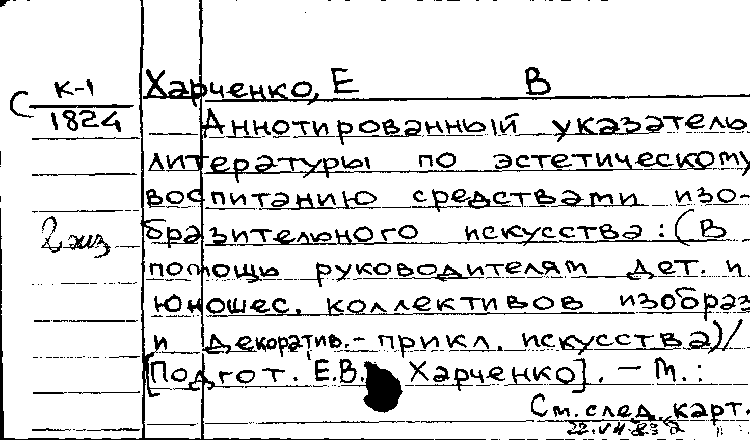 Харченко, Е В
С К-1
1824
Аннотированный указатель
литературы по эстетическому
воспитанию средствами изо-
2 экз
бразительного искусства: (В
помощь руководителям дет. и
юношес. коллективов изобраз
и декоратив.- прикл. искусства)/
[Подгот. Е.В. Харченко]. – М.:
См. след. карт.